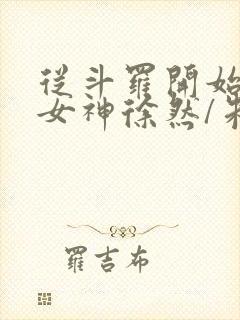 從斗羅開始
女神徐然/
羅吉布